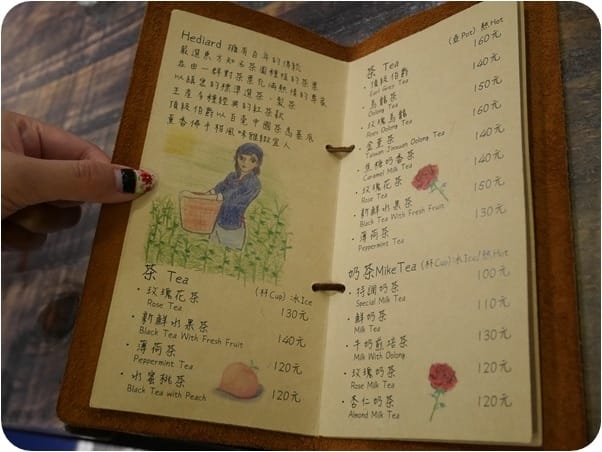 Hediard 擁有百年的傳統
嚴選東方知名茶園種植的茶葉
並由一群對茶葉充滿熱情的專家
的標準選茶、製茶
生產多種經典的紅茶款
頂級伯爵以白毫中國茶為基底
薰香佛手柑風味雅緻宜人
茶 Tea (杯Cup) 冰Ice
・玫瑰花茶 130元
Rose Tea
・新鮮水果茶 140元
Black Tea With Fresh Fruit
・薄荷茶 120元
Peppermint Tea
・水蜜桃茶 120元
Black Tea with Peach
茶 Tea (壺Pot) 熱Hot
・頂級伯爵 160元
Earl Grey Tea
・烏龍茶 140元
Oolong Tea
・玫瑰烏龍 150元
Rose Oolong Tea
・金萱茶 160元
Taiwan Jinxuan Oolong Tea
・焦糖奶香茶 140元
Caramel Milk Tea
・玫瑰花茶 140元
Rose Tea
・新鮮水果茶 150元
Black Tea With Fresh Fruit
・薄荷茶 130元
Peppermint Tea
奶茶MikeTea (杯Cup):冰Ice/熱Hot
・特調奶茶 100元
Special Milk Tea
・鮮奶茶 110元
Milk Tea
・牛奶煎焙茶 130元
Milk With Oolong
・玫瑰奶茶 120元
Rose Milk Tea
・杏仁奶茶 120元
Almond Milk Tea